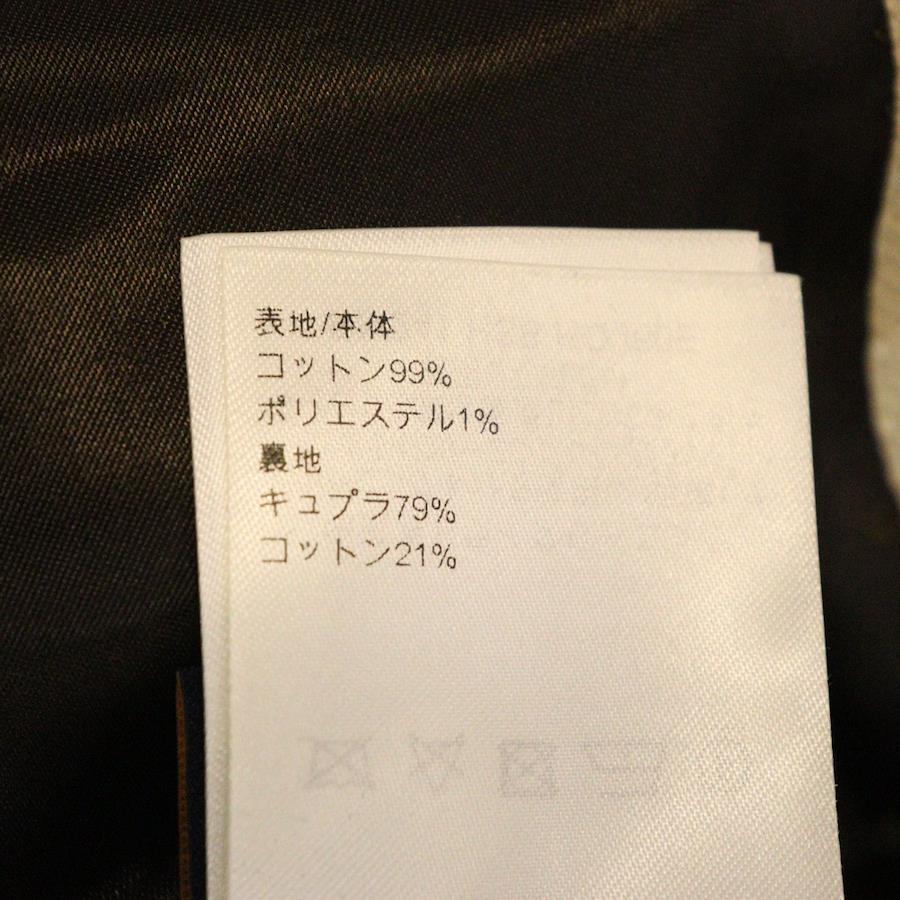 表地/本体
コットン99%
ポリエステル1%
裏地
キュプラ79%
コットン21%